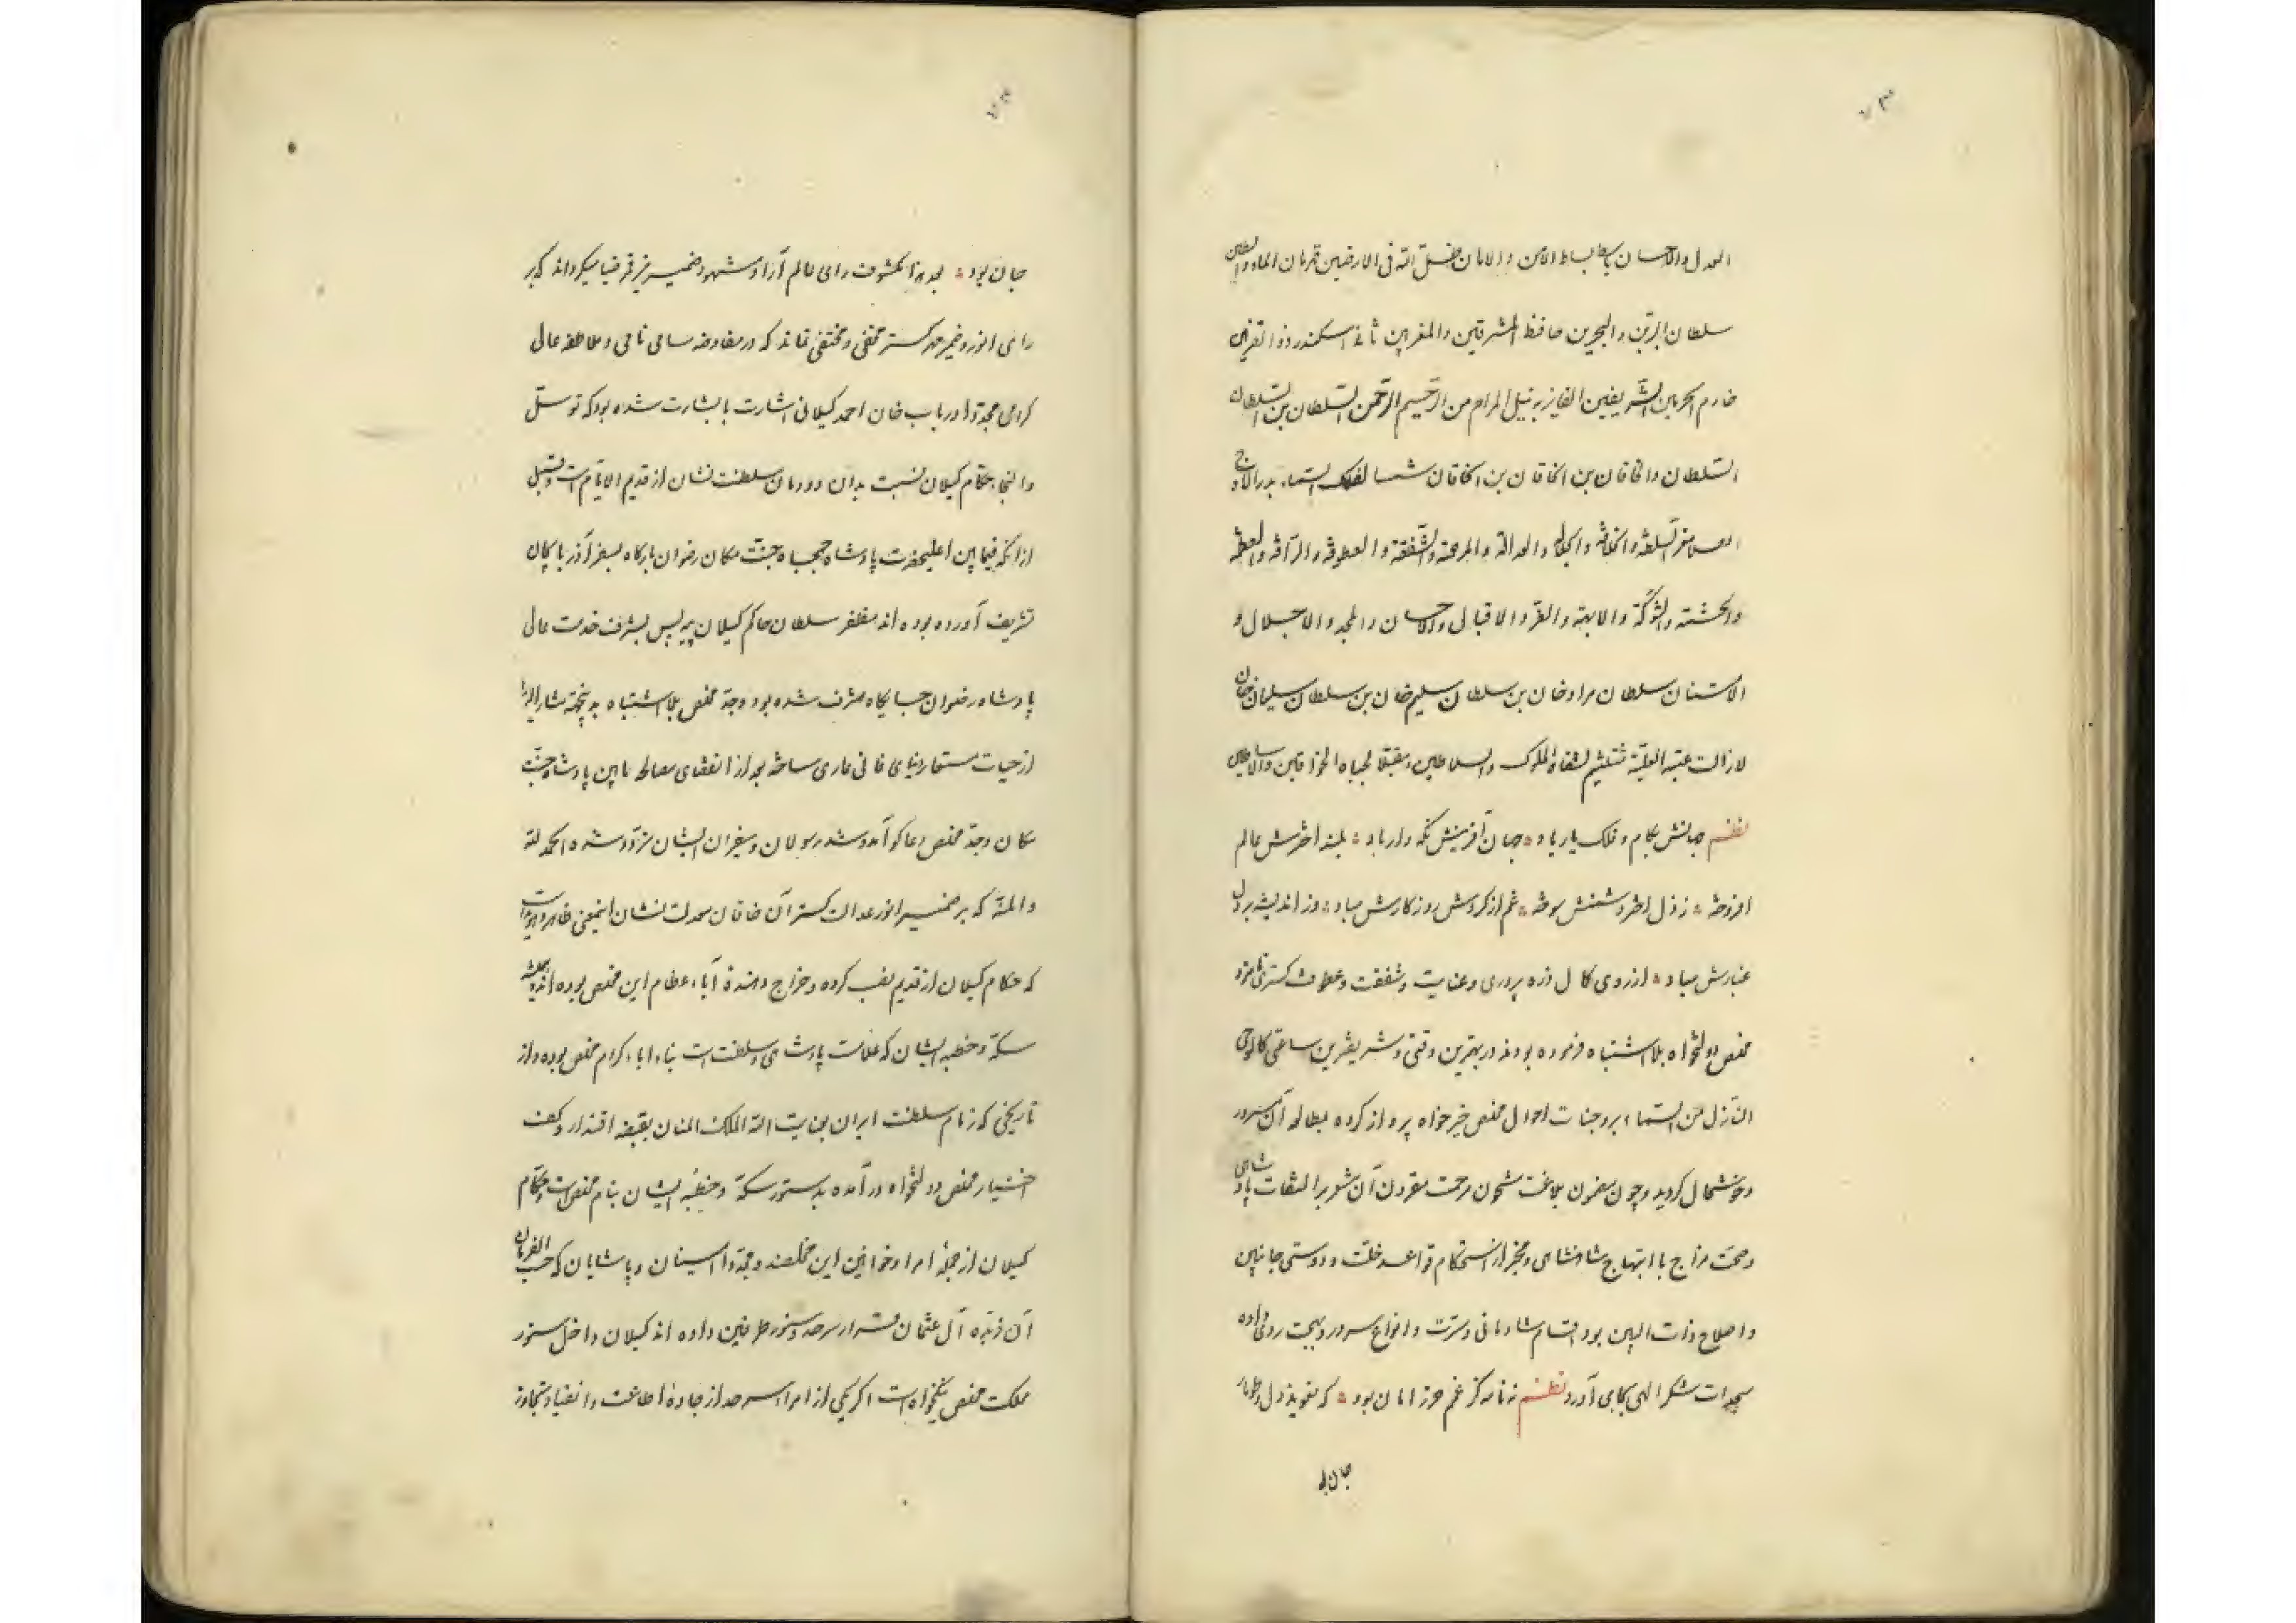 العدل والاحسان باسط بساط الامن والامان ظل الله فی الارضین قهرمان الماء والطین
سلطان البرین والبحرین حافظ المشرقین والمغربین ثانی اسکندر ذو القرنین
خادم الحرمین الشریفین الفایز به نیل المرام من الرحیم الرحمن السلطان بن السلطان
السلطان والخاقان بن الخاقان بن الخاقان شمسا لفلک السماء بدرا
السلطنة والخلافة والجلالة والعدالة والمرحمة والشفقة والعطوفة والرأفة والعظمة
والحشمة والشوکة والابهة والعز والاقبال والاحسان والمجد والاجلال و
الامتنان سلطان مراد خان بن سلطان سلیم خان بن سلطان سلیمان خان
لازالت عتبه العلیة لشفاه الملوک والسلاطین ومقبلا لجباه الخواقین
نظم جهانش بکام و فلک یار باد جهان آفرینش نکه دار باد بلند اخترش عالم
افروخته زوال اختر دشمنش سوخته غم از کردش روزکارش مباد وز اندیشه بر دل
غبارش مباد از روی کمال ذره پروری وعنایت وشفقت وعطوفت کستری نامزد
مخلص دولتخواه بلا اشتباه فرموده بودند در بهترین وقتی وشریفترین ساعتی کالوحی
النزل من السماء بر وجنات احوال مخلص خیرخواه پرواز کرده بمطالعه آن مسرور
وخوشحال کردید وچون مضمون بلاغت مشحون مرحمت مقرون آن مشعر بر التفات پادشاهی
وصحت مزاج با ابتهاج شاهنشاهی ومخبر از استحکام قواعد خلت ودوستی جانبین
واصلاح ذات البین بود اقسام شادمانی ومسرت وانواع سرور وبهجت روی داده
سجدات شکر الهی بجای آورد نظم نه نامه کز غم حرز امان بود که تعویذ دل و
جان بود
جهان بود بعد هذا مکشوف رای عالم آرا ومشهود ضمیر میکرداند که بر
رای انور وضمیر مهر کستر مخفی ومختفی نماند که در مفاوضه سامی نامی وملاطفه عالی
کرامی مجددا در باب خان احمد کیلانی اشارت با بشارت شده بود که توسل
والتجاء حکام کیلان نسبت بدان دودمان سلطنت نشان از قدیم الایام است وقبل
ازانکه فیمابین اعلیحضرت پادشاه جمجاه جنت مکان رضوان بارکاه بسفر آذربایجان
تشریف آورده بوده اند مظفر سلطان حاکم کیلان بیه پس بشرف خدمت عالی
پادشاه رضوان جایکاه مشرف شده بود وجد مخلص بلا اشتباه مشارالیه را
از حیات مستعار دنیای فانی عاری ساخته بعد از انقضای مصالحه مابین پادشاه جنت
مکان وجد مخلص دعاکو آمد وشد رسولان وسفیران ایشان تردد شده الحمد لله
والمنه که بر ضمیر انور عدالت کستر آن خاقان معدلت نشان اینمعنی ظاهر وهویداست
که حکام کیلان از قدیم نصب کرده وخراج دهنده آباء عظام این مخلص بوده اند وهمیشه
سکه وخطبه ایشان که علامت پادشاهی وسلطنت است بنام آباء کرام مخلص بوده واز
تاریخی که زمام سلطنت ایران بعنایت الله الملک المنان بقبضه اقتدار وکف
اختیار مخلص دولتخواه درآمده بدستور سکه وخطبه ایشان بنام مخلص است وحکام
کیلان از جمله امرا وخوانین این مخلصند ومجددا وپاشایان که حسب الفرمان
آن زبده آل عثمان قرار سرحد وسنور طرفین داده اند کیلان داخل سنور
مملکت مخلص نیکخواه است اکر یکی از امراء سرحد از جاده اطاعت وانقیاد تجاوز